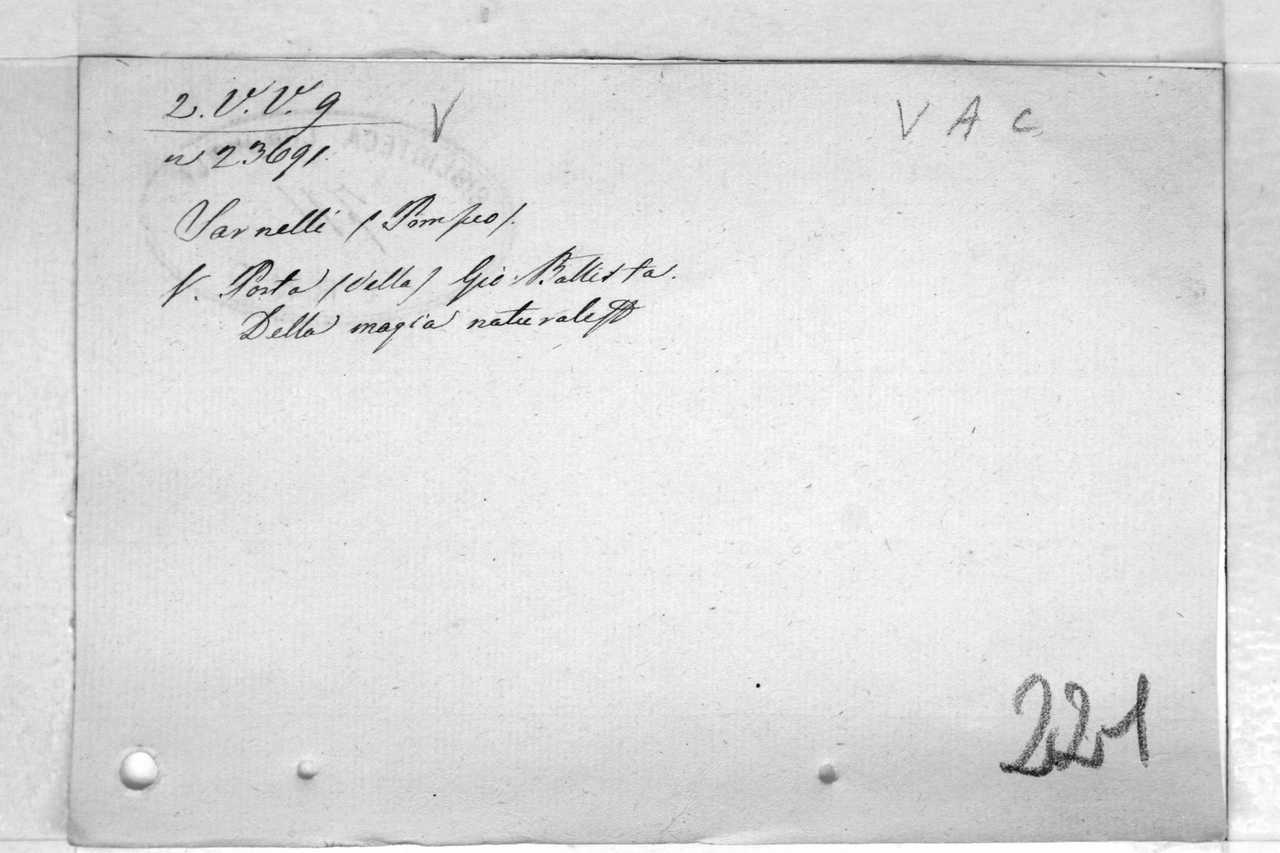 2. V. V. 9
V
V A C
n 23691.
Sarnelli (Pompeo).
V. Porta (Della) Gio. Battista.
Della magia naturale
221